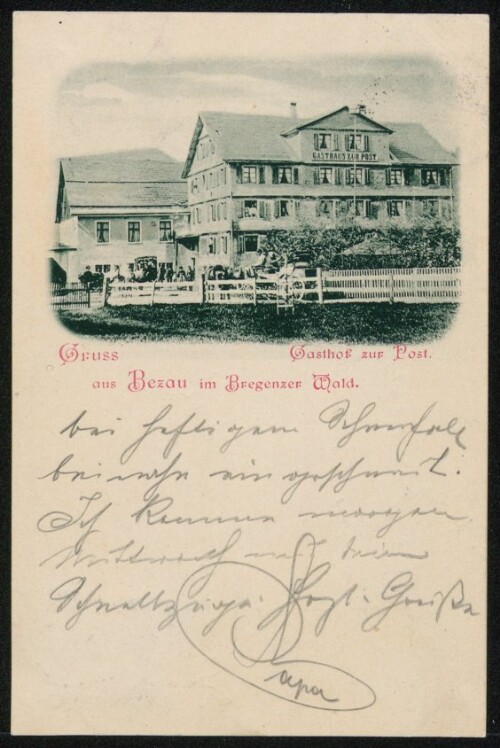 GASTHAUS ZUR POST.
Gruss Gasthof zur Post.
aus Bezau im Bregenzer Wald.
bei heftigem Schneefall
beinahe eingeschneit.
Ich komme morgen
Mittwoch mit dem
Schnellzuge. Hzl. Grüße
Papa